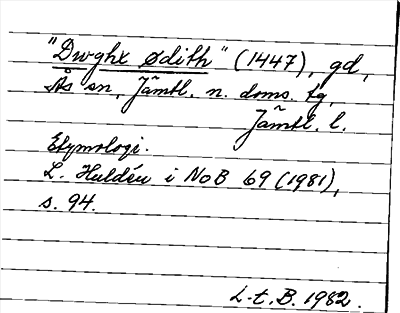 "Dwghx ødith" (1447), gd,
Ås sn, Jämtl. n. doms. tg,
Jämtl. l.
Etymologi.
L. Huldén i NoB 69 (1981),
s. 94.
L-t. B. 1982.